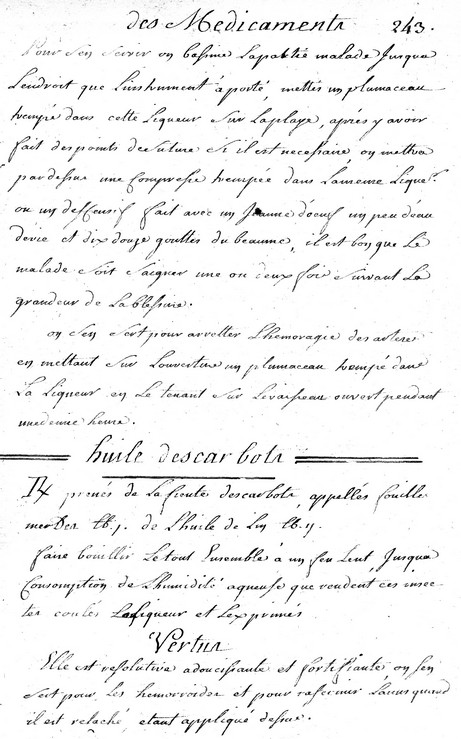 des Medicaments 243.
Pour sen servir on bassine lapartie malade Jusqua
Lendroit que Linstrument á porté, mettés un plumaceau
trempé dans cette Liqueur sur laplaye, aprés y avoir
fait des points de suture si il est necessaire, on mettra
par dessus une Compresse trempée dans Lameme Liqur.
ou un deffensif fait avec un Jaune doeuf un peu deau
devie et dix douze gouttes du beaume, il est bon que Le
malade soit saigner une ou deux fois suivant La
grandeur de La blessure.
on sen sert pour arretter Lhemoragie des arteres
en mettant sur Louverture un plumaceau trempé dans
La Liqueur en Le tenant sur Levaisseau ouvert pendant
unedemie heure.
huile descarbots
prenés de La fiente descarbots, appellés fouille
merdes lb. j. de Lhuile de Lin lb. ij.
faire bouillir Letout Ensemble á un feu Lent, Jusqua
Consomption de Lhumidité aqueuse que rendent ces insec-
tes coulés Laliqueur et Lexprimés
Vertus
Elle est resolutive adoucissante et fortifiante on sen
sert pour Les hemorroides et pour rafermir Lanus quand
il est relaché, etant appliqué dessus.